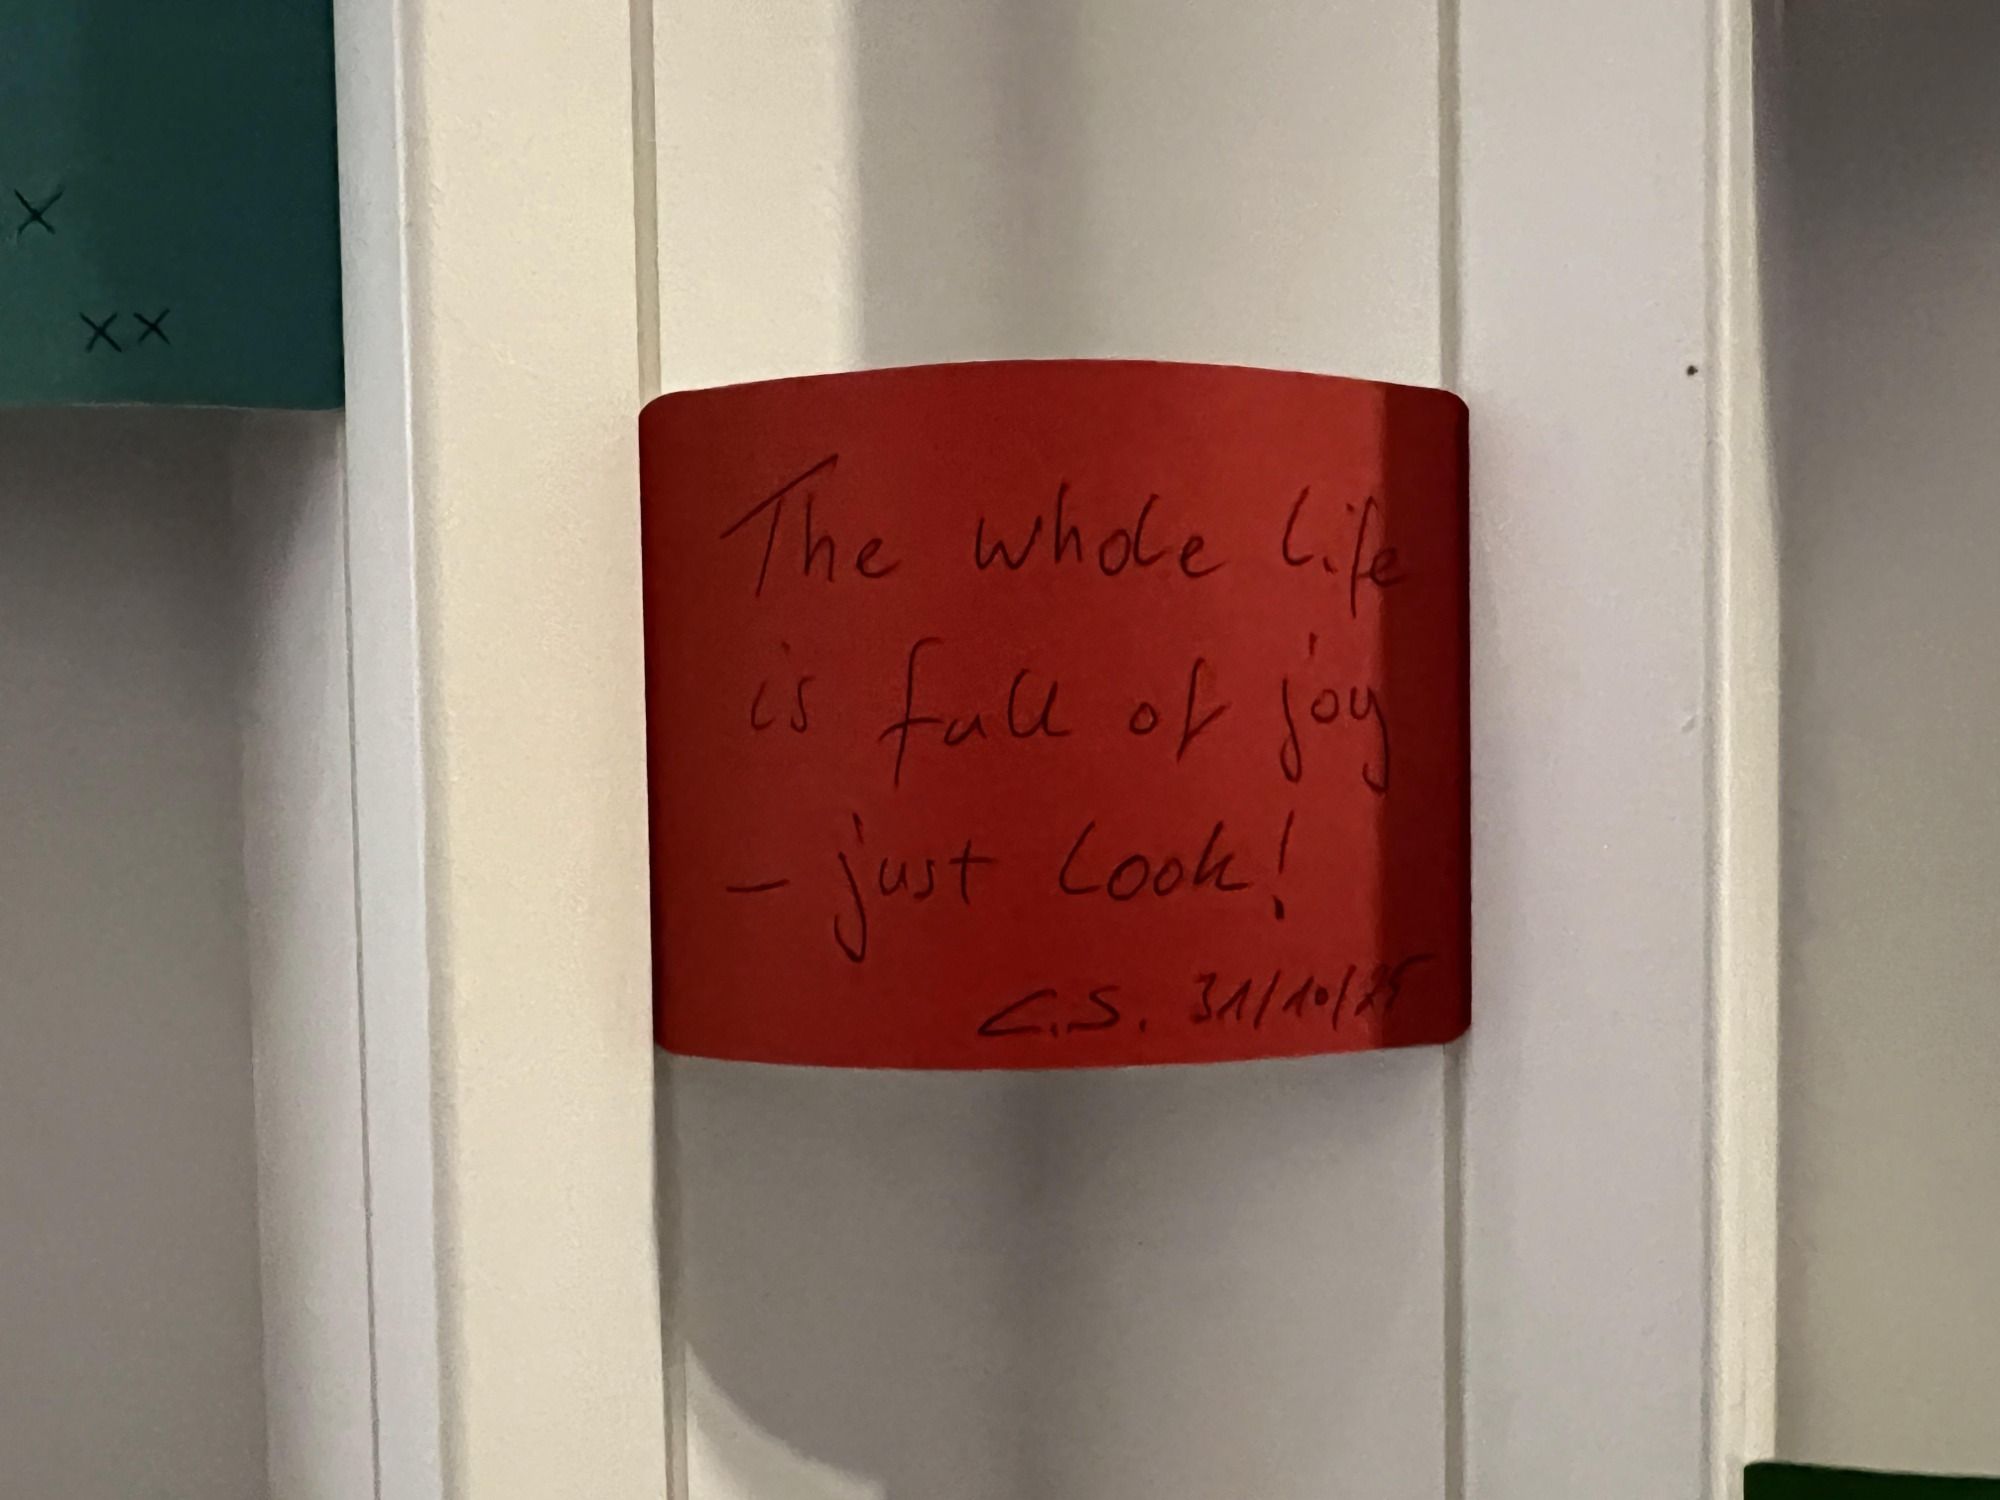 x
xx
The whole life
is full of joy
– just look!
C.S. 31/10/25